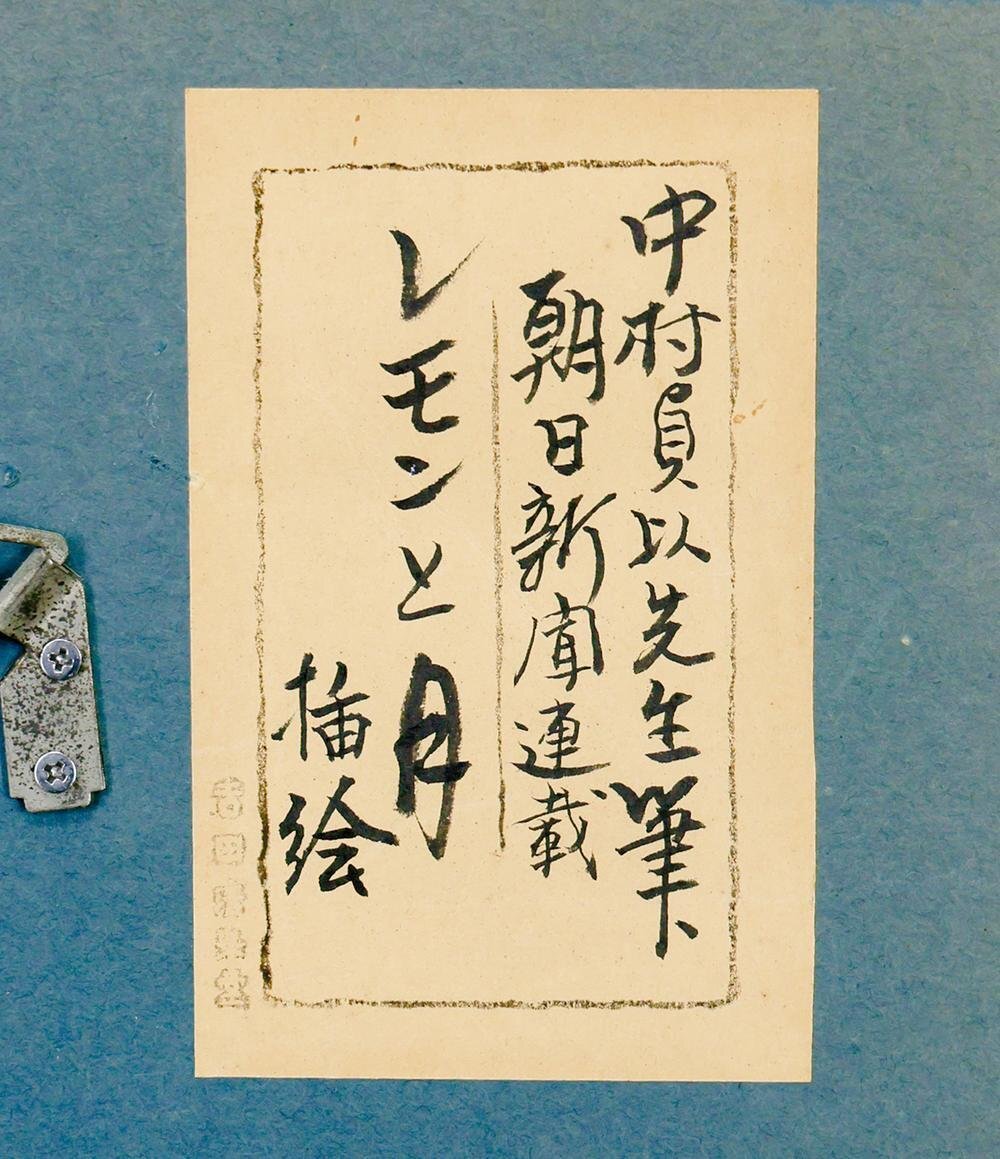 中村貞以先生筆
朝日新聞連載
レモンと月
挿絵